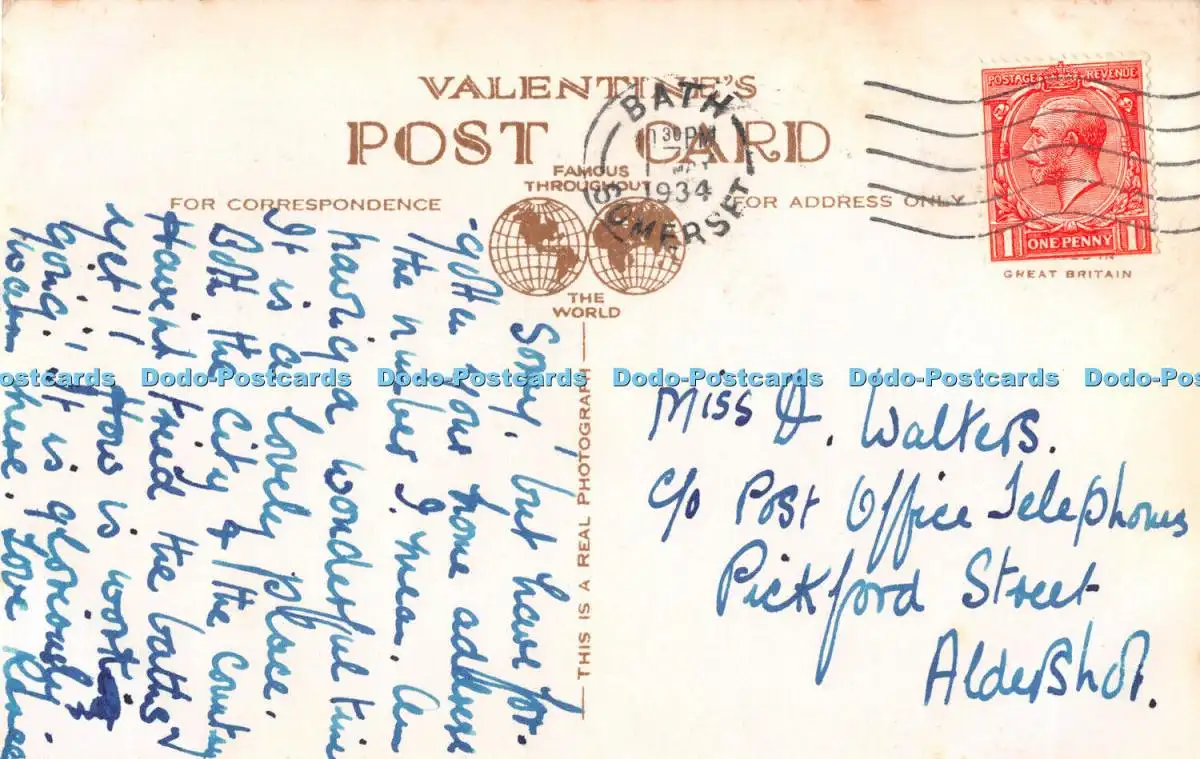 VALENTINE'S
POST CARD
FAMOUS
THROUGHOUT
THE
WORLD
FOR CORRESPONDENCE
FOR ADDRESS ONLY
THIS IS A REAL PHOTOGRAPH
BATH
30 PM
7 MAY
1934
SOMERSET
POSTAGE REVENUE
1 ONE PENNY 1
GREAT BRITAIN
Sorry, but have for-
-gotten your home address
the number I mean. Am
having a wonderful time
It is a lovely place.
Both the City & the country
Havent tried the baths
yet!! How is work
going? It is gloriously
warm here. Love
Miss D. Walters.
c/o Post Office Telephones
Pickford Street
Aldershot.
Dodo-Postcards Dodo-Postcards Dodo-Postcards Dodo-Postcards Dodo-Postcards Dodo-Postcards